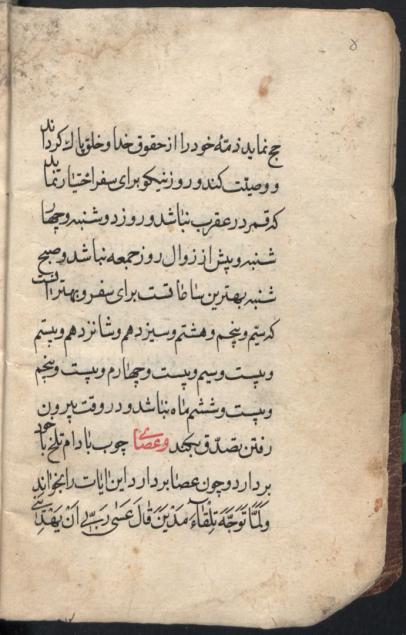 ۸
حج نماید ذمّه خود را از حقوق خدا و خلق پاک گرداند
و وصیّت کند و روز نیکو برای سفر اختیار نماید
که قمر در عقرب نباشد و روز دوشنبه و چهار
شنبه و پیش از زوال روز جمعه نباشد و صبح
شنبه بهترین ساعاتست برای سفر و بهتر است
که سیّم و پنجم و هشتم و سیزدهم و شانزدهم و بیستم
و بیست و سیم و بیست و چهارم و بیست و پنجم
و بیست و ششم ماه نباشد و در وقت بیرون
رفتن تصدّق بکند و عصای چوب بادام تلخ با خود
بردارد و چون عصا بردارد این ایات را بخواند
وَلَمَّا تَوَجَّهَ تِلْقَاءَ مَدْیَنَ قَالَ عَسَی رَبِّی اَنْ یَهْدِیَنِی